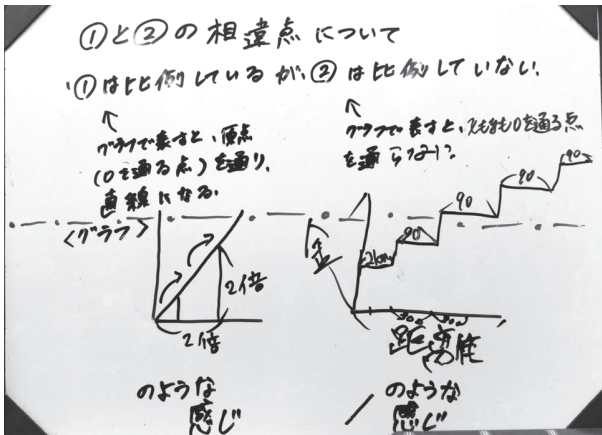 ①と②の相違点について
・①は比例しているが、②は比例していない。
グラフで表すと、原点
(0を通る点)を通り、
直線になる。
グラフで表すと、xもyも0を通る点
を通らない。
<グラフ>
2倍
2倍
のような
感じ
2km
90
90
90
90
距離
のような
感じ